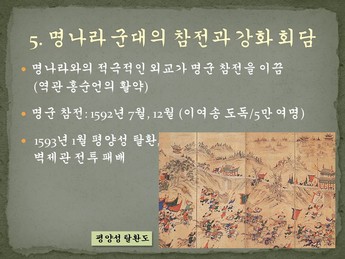 5. 명나라 군대의 참전과 강화 회담
명나라와의 적극적인 외교가 명군 참전을 이끔
(역관 홍순언의 활약)
명군 참전: 1592년 7월, 12월 (이여송 도독/5만 여명)
1593년 1월 평양성 탈환,
벽제관 전투 패배
평양성 탈환도